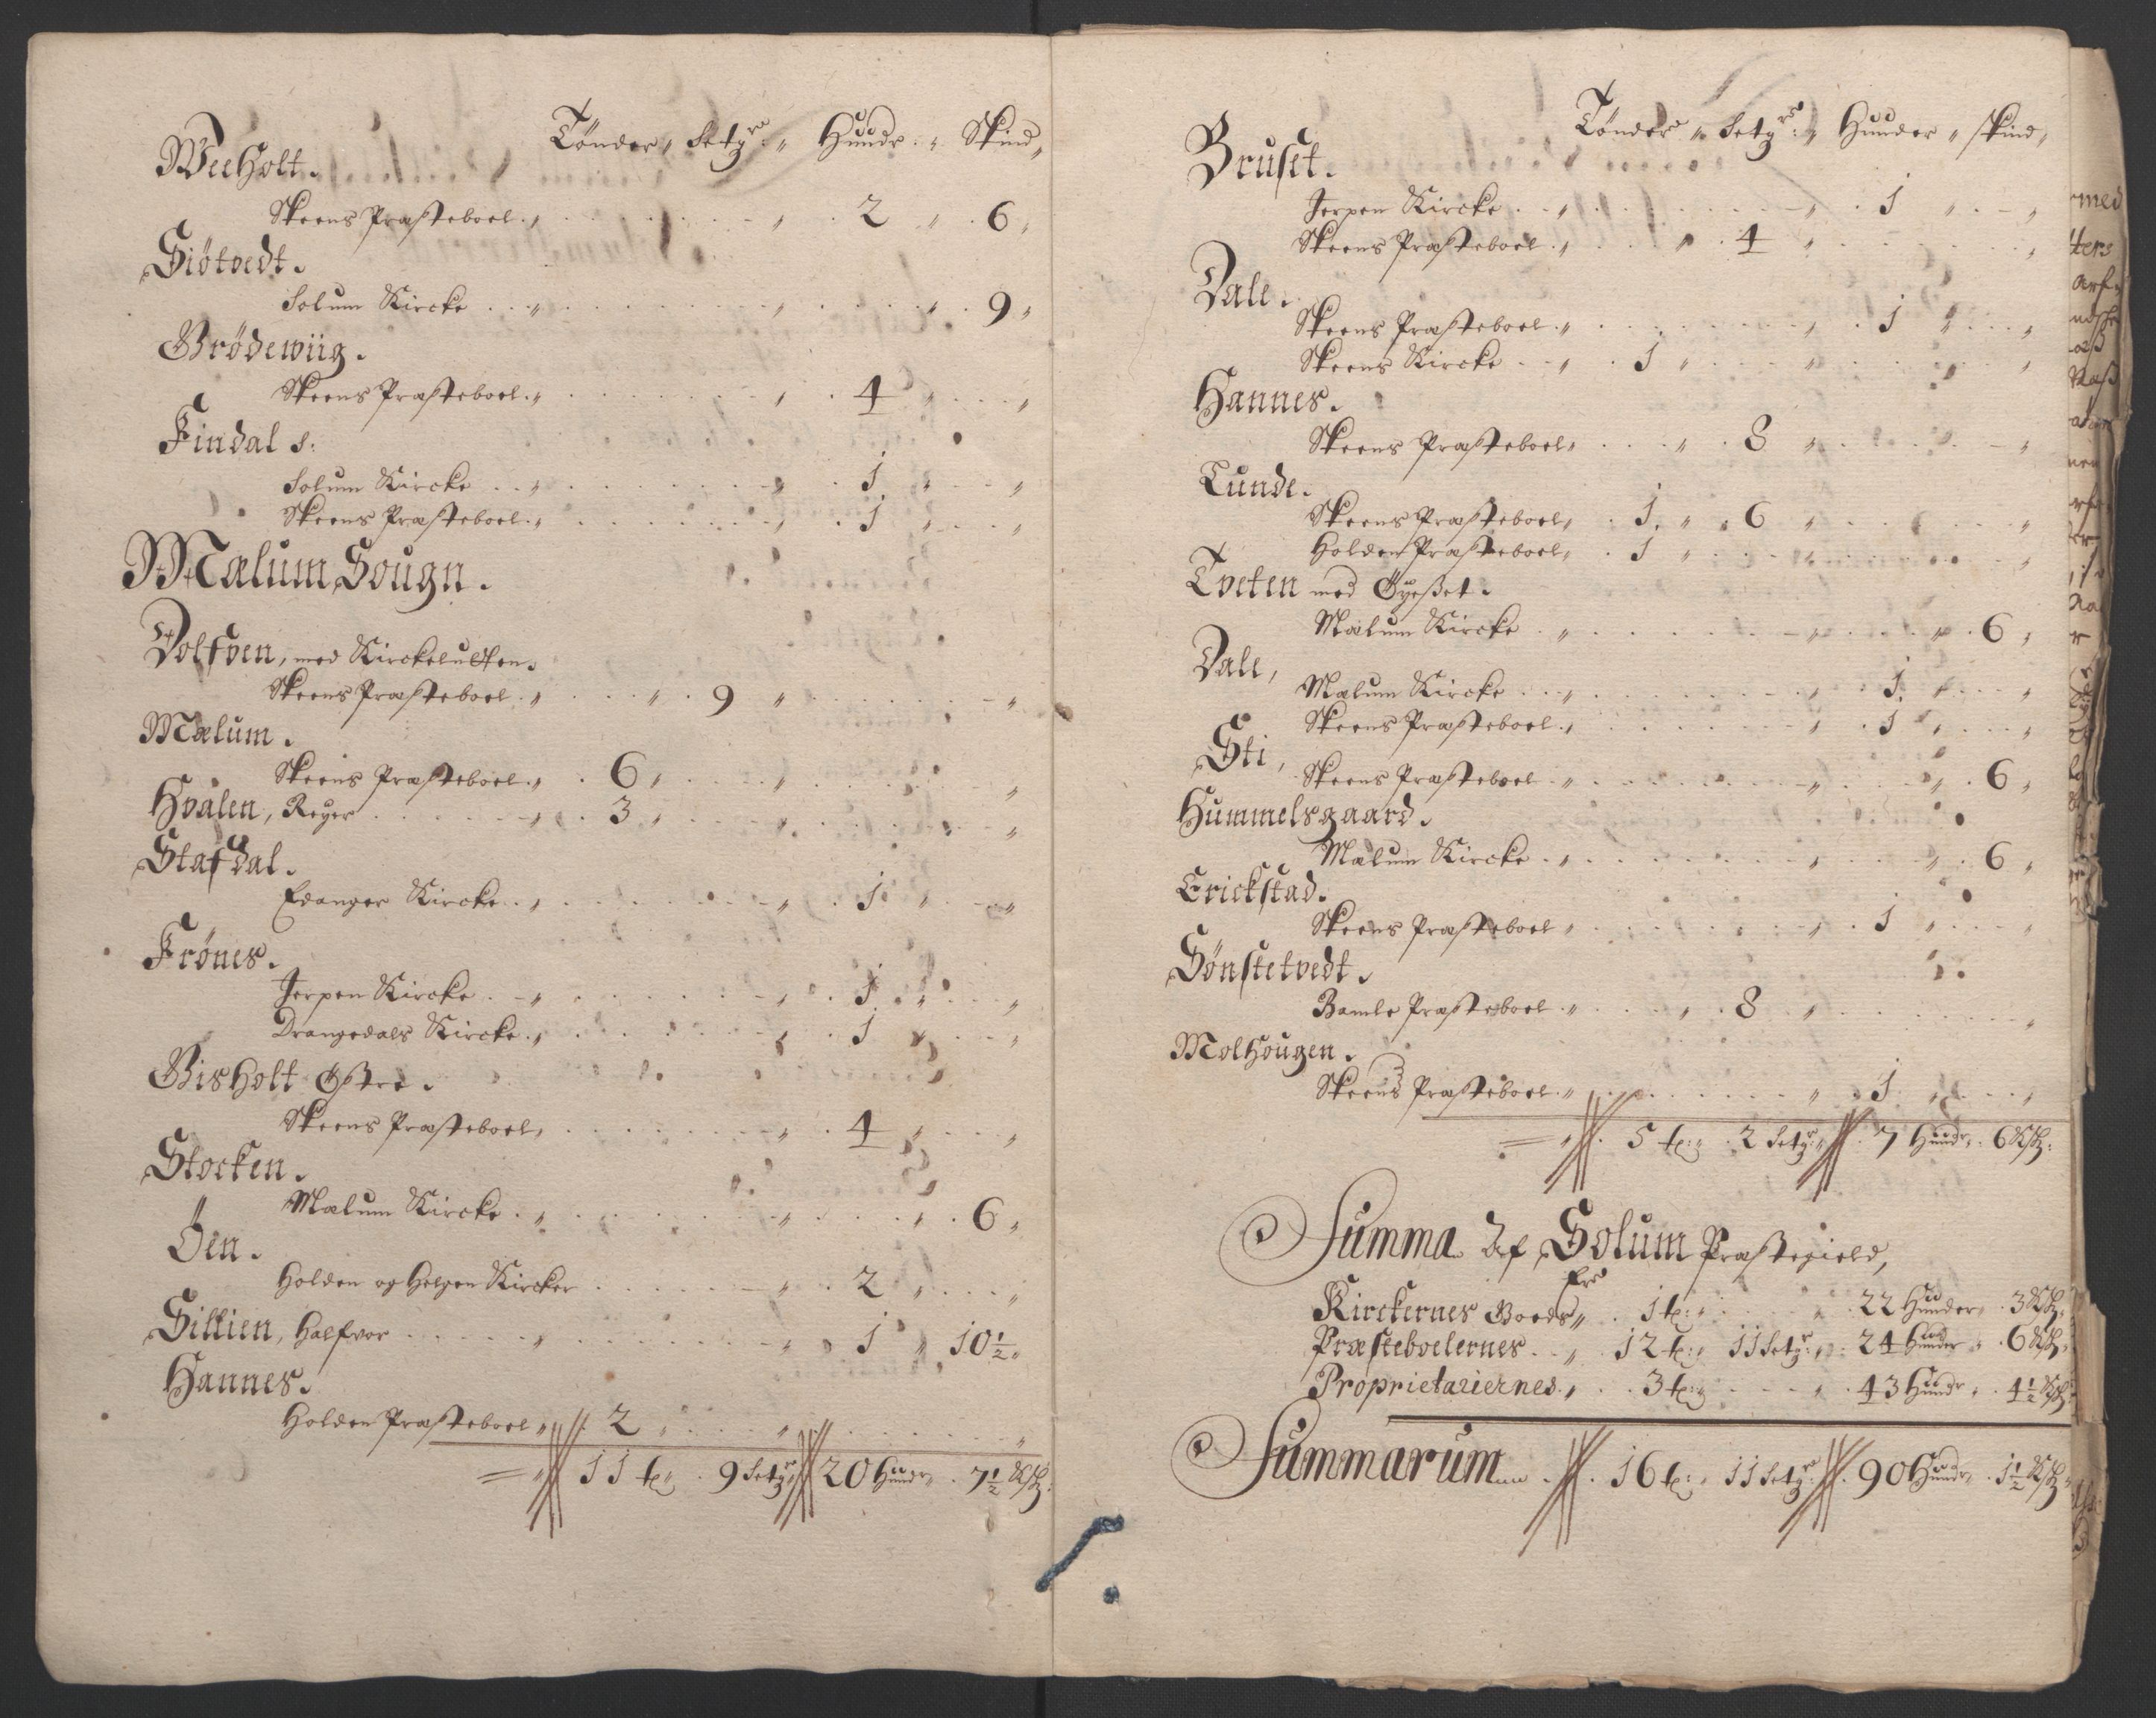 Tönder „ Setgr: „ Hundr: „ Skind „
Weeholt.
Skeens Præsteboel. „ 2 „ 6 „
Siötvedt.
Solum Kircke „ „ „ 9 „
Grödewiig.
Skeens Præsteboel. „ „ 4 „ „
Findal s:
Solum Kircke „ „ 1 „ „
Skeens Præsteboel. „ „ 1 „ „
Mælum Sougn.
Dolfven, med Kirckelutten.
Skeens Præsteboel. „ „ 9 „ „
Mælum.
Skeens Præsteboel. „ 6 „ „ „
Hvalen, Reyer „ 3 „ „ „
Stafdal.
Edanger Kircke. „ „ 1 „ „
Frönes.
Jerpen Kircke. „ „ 1 „ „
Drangedals Kircke. „ „ 1 „ „
Gisholt Östre.
Skeens Præsteboel, „ 4 „ „
Stocken.
Mælum Kircke. „ „ „ 6 „
Öen.
Holden og Helgen Kircker „ 2 „ „
Sillien, Halfvor „ „ 1 „ 10½ „
Hannes.
Holden Præsteboel „ 2 „ „ „
= „ 11 t: „ 9 Setgr „ 20 Hundr „ 7½ Sk:
Tönder „ Setgr: „ Hunder „ skind „
Bruset.
Jerpen Kircke „ „ 1 „ „
Skeens Præsteboel. „ „ 4 „ „
Dale.
Skeens Præsteboel. „ „ 1 „ „
Skeens Kircke „ 1 „ „ „
Hannes.
Skeens Præsteboel „ „ 8 „ „
Lunde.
Skeens Præsteboel „ 1. „ „ 6 „ „
Holden Præsteboel „ 1 „ „
Tveten med Öyesset.
Mælum Kircke „ „ „ 6 „
Dale,
Mælum Kircke „ „ 1. „ „
Skeens Præsteboel. „ „ 1 „ „
Sti,
Skeens Præsteboel „ „ „ 6 „
Hummelsgaard.
Mælum Kircke. „ „ „ 6 „
Erickstad.
Skeens Præsteboel „ „ 1 „ „
Sönstetvedt.
Bamle Præsteboel „ „ 8 „ „
Molhougen.
Skeens Præsteboel. „ „ 1 „ „
= „ 5 t: „ 2 Setgr: „ 7 Hundr „ 6 Sk:
Summa Af Solum Præstegield,
Kirckernes Goeds „ 1 t: „ „ 22 Hunder „ 3 Sk:
Præsteboelernes „ 12 t: „ 11 Setgr: „ 24 Hunder „ 6 Sk:
Proprietariernes. „ 3 t: „ „ 43 Hundr „ 4½ Sk:
Summarum „ 16 t: „ 11 Setgr „ 90 Hundr „ 1½ Sk: